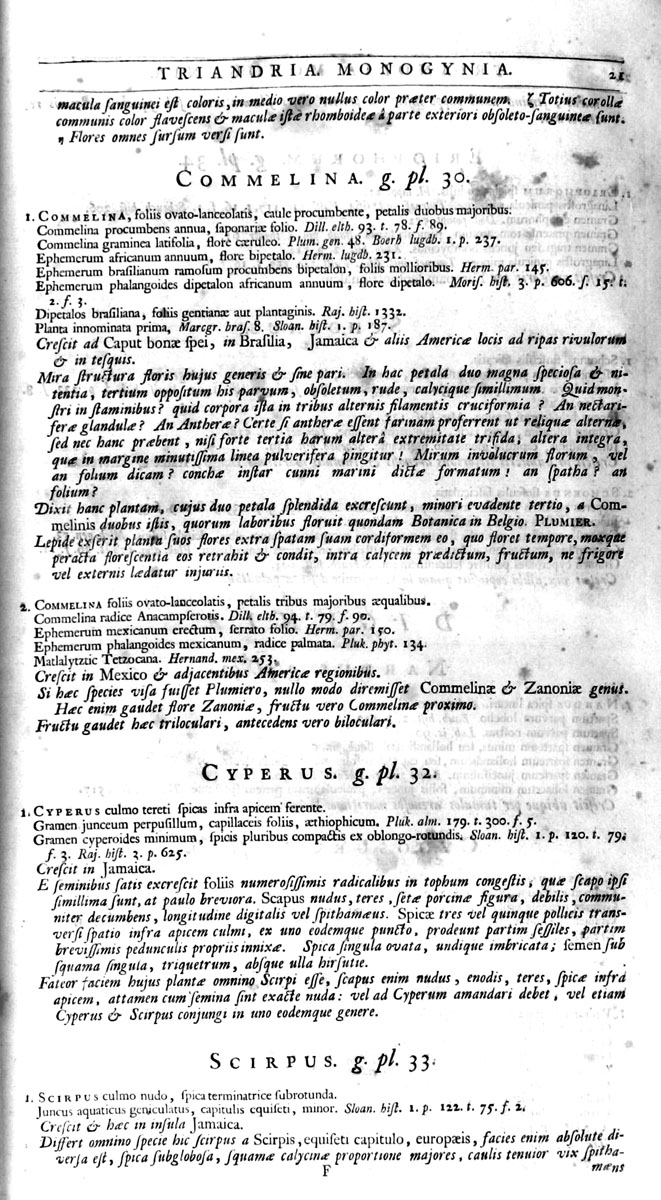 TRIANDRIA. MONOGYNIA. 21
macula ſanguinei eſt coloris, in medio vero nullus color præter communem. ζ Totius corollæ
communis color flaveſcens & maculæ iſtæ rhomboideæ á parte exteriori obſoleto-ſanguineæ ſunt.
η Flores omnes ſurſum verſi ſunt.
COMMELINA. g. pl. 30.
1. COMMELINA, foliis ovato-lanceolatis, caule procumbente, petalis duobus majoribus.
Commelina procumbens annua, ſaponariæ folio. Dill. elth. 93. t. 78. f. 89.
Commelina graminea latifolia, flore cæruleo. Plum. gen. 48. Boerh lugdb. 1. p. 237.
Ephemerum africanum annuum, flore bipetalo. Herm. lugdb. 231.
Ephemerum braſilianum ramoſum procumbens bipetalon, foliis mollioribus. Herm. par. 145.
Ephemerum phalangoides dipetalon africanum annuum, flore dipetalo. Moriſ. hiſt. 3. p. 606. ſ. 15. t.
2. f. 3.
Dipetalos braſiliana, foliis gentianæ aut plantaginis. Raj. hiſt. 1332.
Planta innominata prima, Marcgr. braſ. 8. Sloan. hiſt. 1. p. 187.
Creſcit ad Caput bonæ ſpei, in Braſilia, Jamaica & aliis Americæ locis ad ripas rivulorum
& in teſquis.
Mira ſtructura floris hujus generis & ſine pari. In hac petala duo magna ſpecioſa & ni-
tentia, tertium oppoſitum his parvum, obſoletum, rude, calycique ſimillimum. Quid mon-
ſtri in ſtaminibus? quid corpora iſta in tribus alternis filamentis cruciformia? An nectari-
feræ glandulæ? An Antheræ? Certe ſi antheræ eſſent farinam proferrent ut reliquæ alternæ,
ſed nec hanc præbent, niſi forte tertia harum alterâ extremitate trifida, altera integra,
quæ in margine minutiſſima linea pulverifera pingitur! Mirum involucrum florum, vel
an folium dicam? conchæ inſtar cunni marini dictæ formatum! an ſpatha? an
folium?
Dixit hanc plantam, cujus duo petala ſplendida excreſcunt, minori evadente tertio, a Com-
melinis duobus iſtis, quorum laboribus floruit quondam Botanica in Belgio. PLUMIER.
Lepide exſerit planta ſuos flores extra ſpatam ſuam cordiformem eo, quo floret tempore, moxque
peracta floreſcentia eos retrahit & condit, intra calycem prædictum, fructum, ne frigore
vel externis lædatur injuriis.
2. COMMELINA foliis ovato-lanceolatis, petalis tribus majoribus æqualibus.
Commelina radice Anacampſerotis. Dill. elth. 94. t. 79. f. 90.
Ephemerum mexicanum erectum, ſerrato folio. Herm. par. 150.
Ephemerum phalangoides mexicanum, radice palmata. Pluk. phyt. 134.
Matlalytztic Tetzocana. Hernand. mex. 253.
Creſcit in Mexico & adjacentibus Americæ regionibus.
Si hæc ſpecies viſa fuiſſet Plumiero, nullo modo diremiſſet Commelinæ & Zanoniæ genus.
Hæc enim gaudet flore Zanoniæ, fructu vero Commelinæ proximo.
Fructu gaudet hæc triloculari, antecedens vero biloculari.
CYPERUS. g. pl. 32.
1. CYPERUS culmo tereti ſpicas infra apicem ferente.
Gramen junceum perpuſillum, capillaceis foliis, æthiophicum. Pluk. alm. 179. t. 300. f. 5.
Gramen cyperoides minimum, ſpicis pluribus compactis ex oblongo-rotundis. Sloan. hiſt. 1. p. 120. t. 79.
f. 3. Raj. hiſt. 3. p. 625.
Creſcit in Jamaica.
E ſeminibus ſatis excreſcit foliis numeroſiſſimis radicalibus in tophum congeſtis, quæ ſcapo ipſi
ſimillima ſunt, at paulo breviora. Scapus nudus, teres, ſetæ porcinæ figura, debilis, commu-
niter decumbens, longitudine digitalis vel ſpithamæus. Spicæ tres vel quinque pollicis trans-
verſi ſpatio infra apicem culmi, ex uno eodemque puncto, prodeunt partim ſeſſiles, partim
breviſſimis pedunculis propriis innixæ. Spica ſingula ovata, undique imbricata; ſemen ſub
ſquama ſingula, triquetrum, absque ulla hirſutie.
Fateor faciem hujus plantæ omnino Scirpi eſſe, ſcapus enim nudus, enodis, teres, ſpicæ infra
apicem, attamen cum ſemina ſint exacte nuda: vel ad Cyperum amandari debet, vel etiam
Cyperus & Scirpus conjungi in uno eodemque genere.
SCIRPUS. g. pl. 33.
1. SCIRPUS culmo nudo, ſpica terminatrice ſubrotunda.
Juncus aquaticus geniculatus, capitulis equiſeti, minor. Sloan. hiſt. 1. p. 122. t. 75. f. 2.
Creſcit & hæc in inſula Jamaica.
Differt omnino ſpecie hic ſcirpus a Scirpis, equiſeti capitulo, europæis, facies enim abſolute di-
verſa eſt, ſpica ſubgloboſa, ſquamæ calycinæ proportione majores, caulis tenuior vix ſpitha-
F mæus